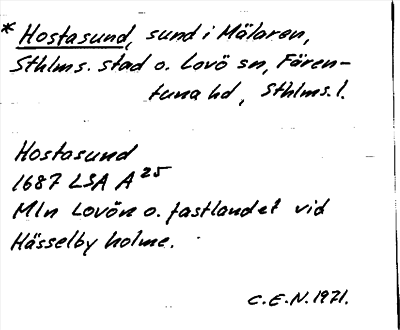 * Hostasund, sund i Mälaren,
Sthlms. stad o. Lovö sn, Fären-
tuna hd, Sthlms. l.
Hostasund
1687 LSA A 25
Mln Lovön o. fastlandet vid
Hässelby holme.
C.E.N. 1971.